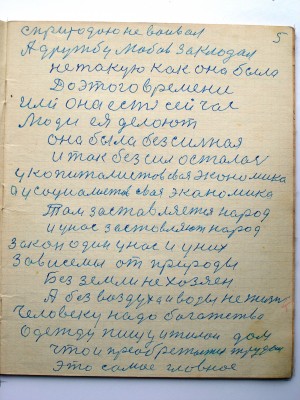 с природою не воивал
5
А дружбу Мабав закладал
не такую как она была
До этого времени
Или она есть сей час
Люди ея делоют
она была безсилная
и так без сил осталас
у копиталистов свая экономика
а у социалистов свая экономика
Там заставляется народ
и у нас заставляют народ
Закон один у нас и у них
Зависемы от природы
Без земли не хозяен
А без воздуха и воды не жизн
Человеку надо богатство
Одежду пищу и жилой дом
что и преобретается трудом
это самое главное